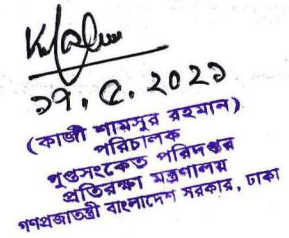 ১৭. ৫. ২০২১
(কাজী শামসুর রহমান)
পরিচালক
গুপ্তসংকেত পরিদপ্তর
প্রতিরক্ষা মন্ত্রণালয়
গণপ্রজাতন্ত্রী বাংলাদেশ সরকার, ঢাকা